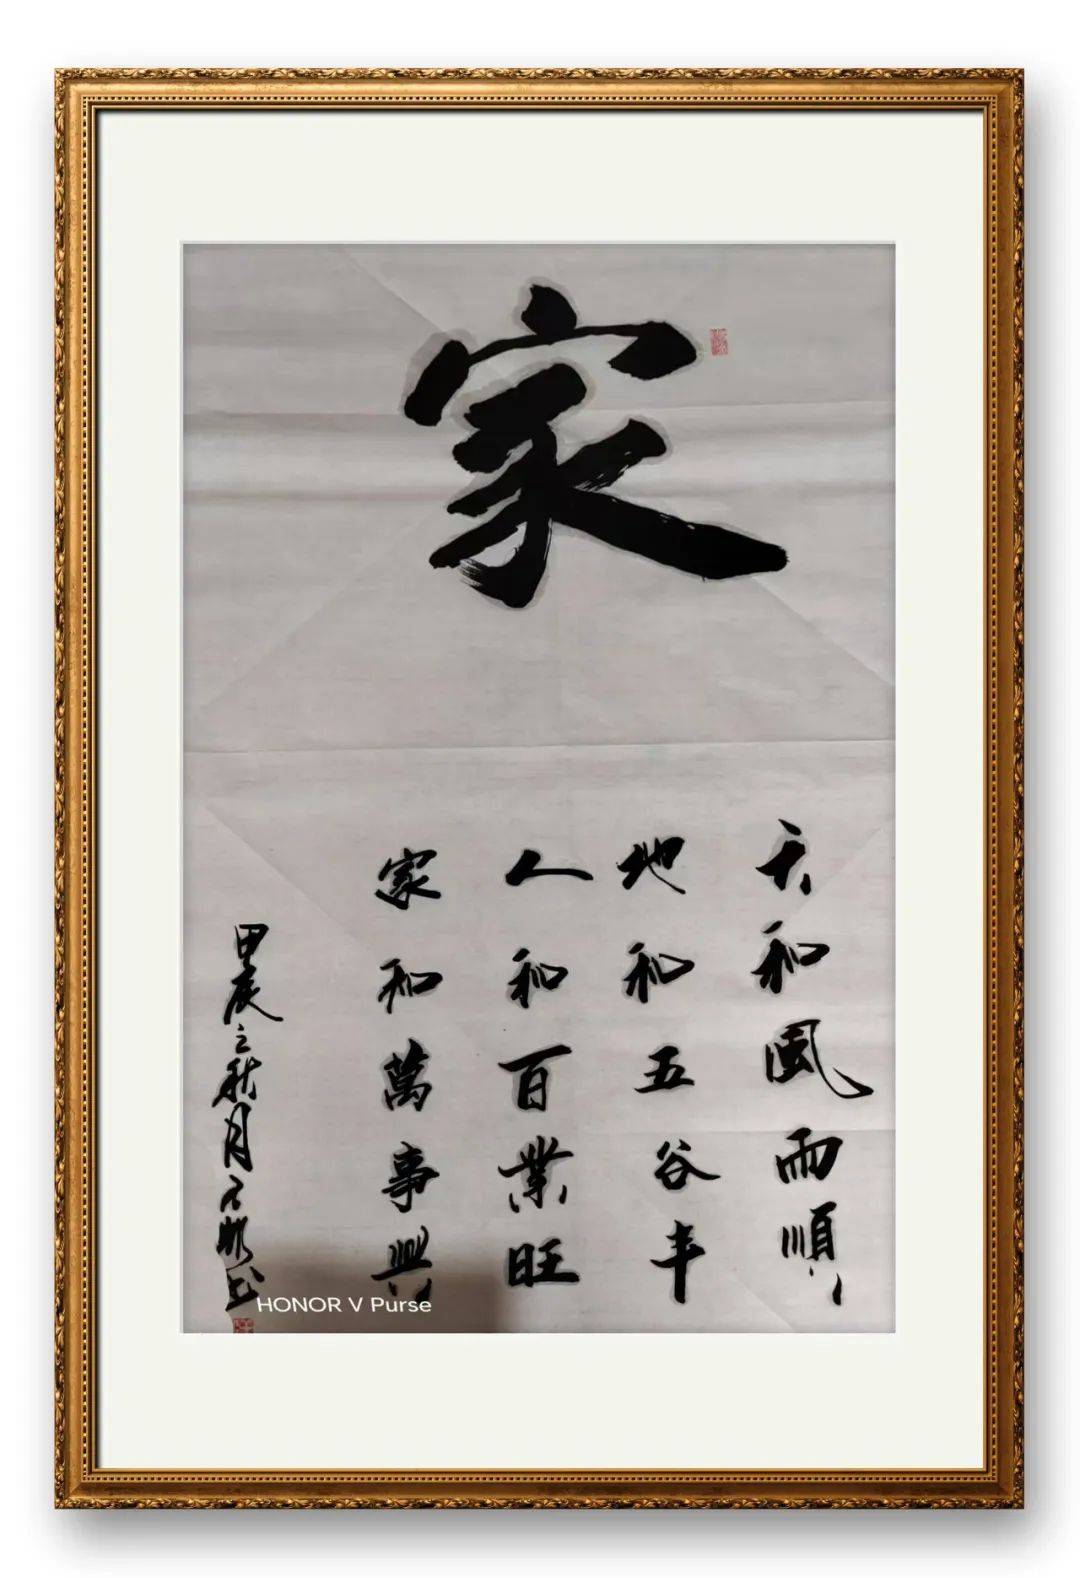 家
天和風雨順
地和五谷丰
人和百業旺
家和萬事興
甲辰之秋月
HONOR V Purse